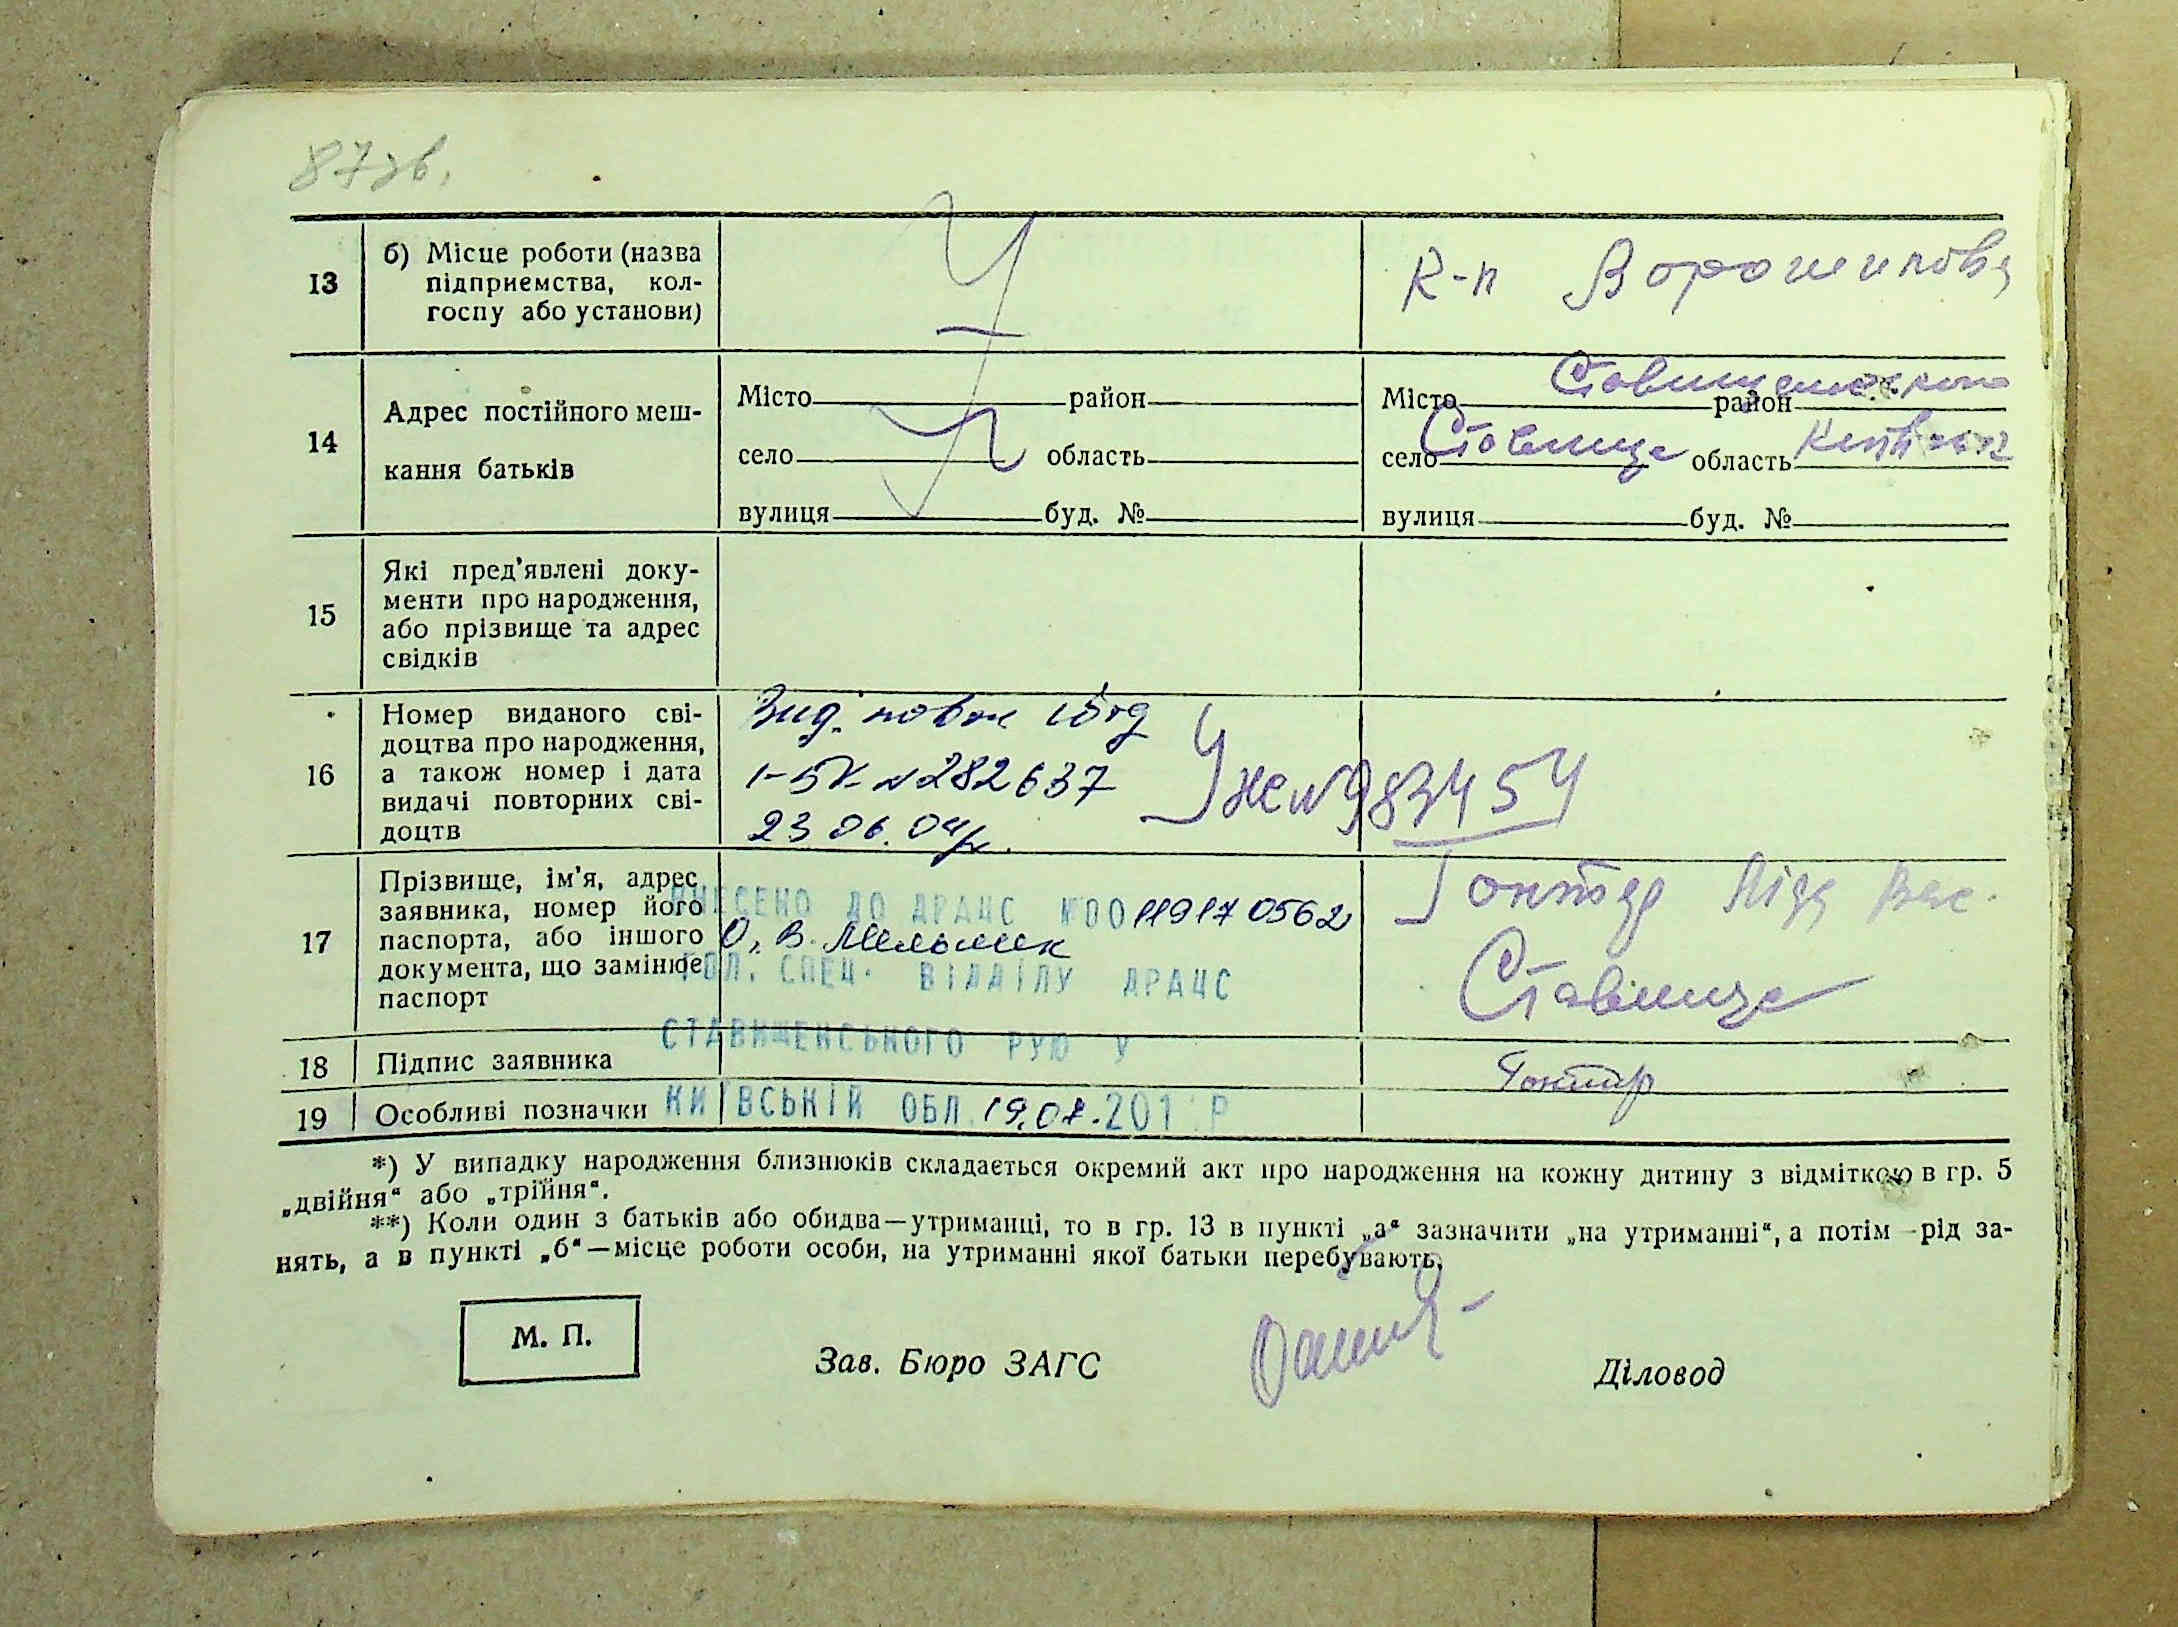 87зв.
13
б) Місце роботи (назва
підприємства, кол-
госпу або установи)
К-п Ворошилова
14
Адрес постійного меш-
кання батьків
Місто район
село область
вулиця буд. №
Місто район Ставищенського
село Ставище область Київська
вулиця буд. №
15
Які пред'явлені доку-
менти про народження,
або прізвище та адрес
свідків
16
Номер виданого сві-
доцтва про народження,
а також номер і дата
видачі повторних сві-
доцтв
Вид. повт
№ 282637
23.06.04р.
№ 983454
17
Прізвище, ім'я, адрес
заявника, номер його
паспорта, або іншого
документа, що замінює
паспорт
ВНЕСЕНО ДО ДРАЦС №00119170562
О. В. Мельник
ГОЛ. СПЕЦ. ВІДДІЛУ ДРАЦС
СТАВИЩЕНСЬКОГО РУЮ У
КИЇВСЬКІЙ ОБЛ. 19.07.201 Р
Гонтар Ліда Вас.
Ставище
18
Підпис заявника
Гонтар
19
Особливі позначки
*) У випадку народження близнюків складається окремий акт про народження на кожну дитину з відміткою в гр. 5
„двійня“ або „трійня“.
**) Коли один з батьків або обидва—утриманці, то в гр. 13 в пункті „а“ зазначити „на утриманні“, а потім—рід за-
нять, а в пункті „б“—місце роботи особи, на утриманні якої батьки перебувають.
М. П.
Зав. Бюро ЗАГС
Діловод